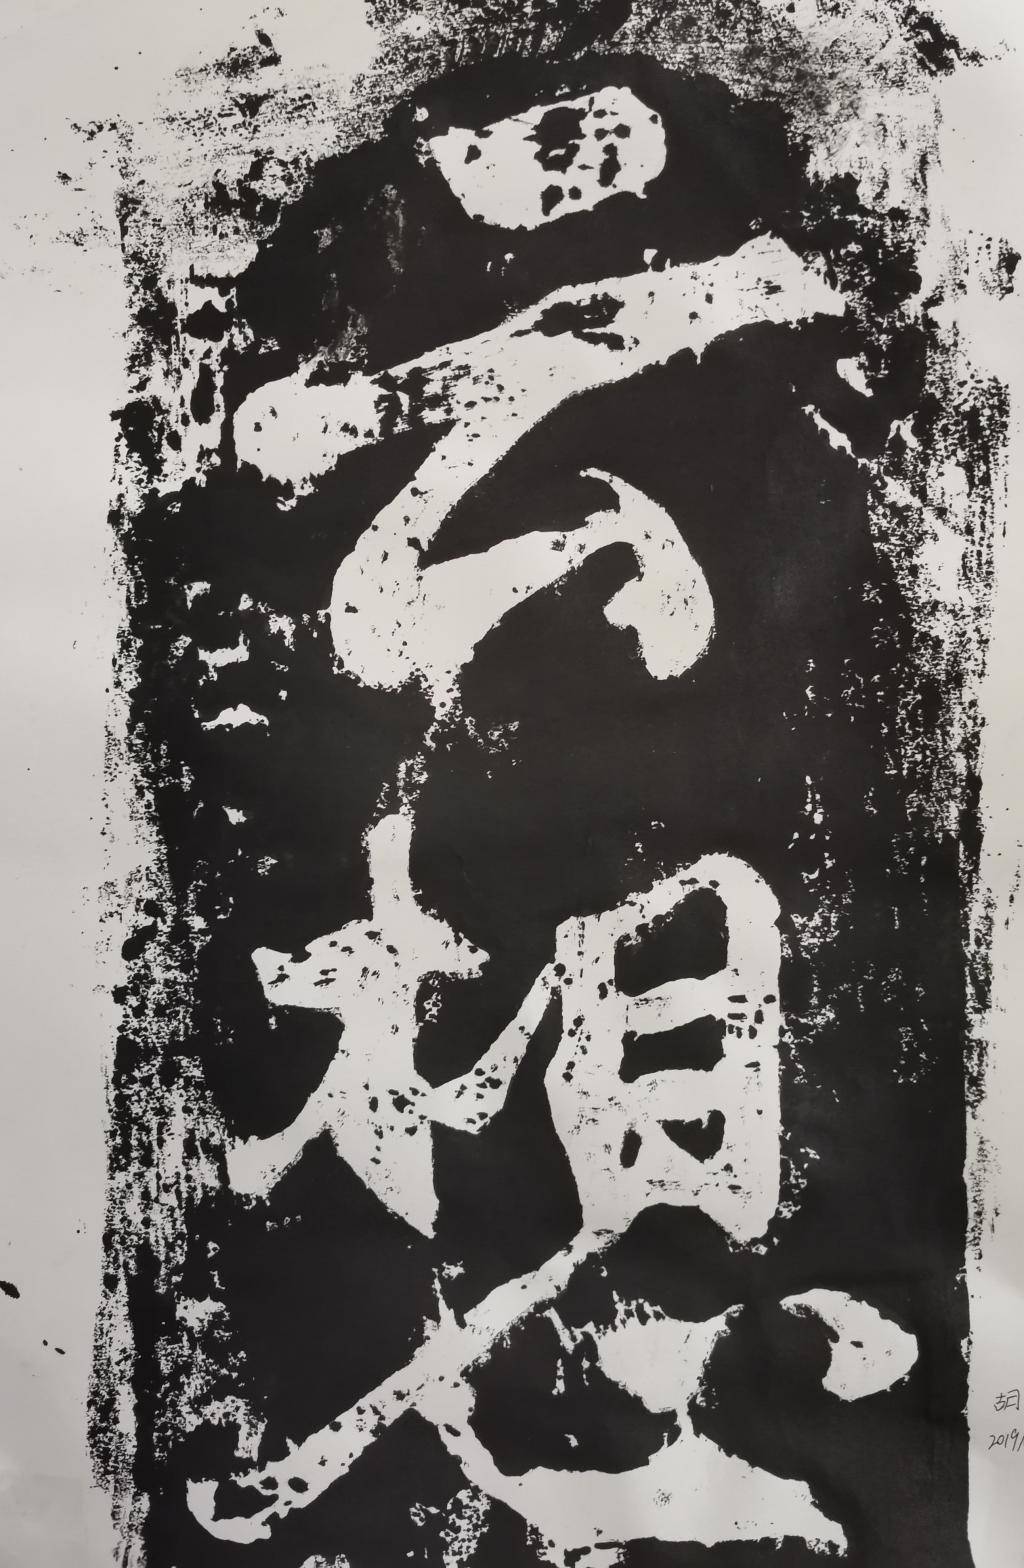 云
想
胡
2019/